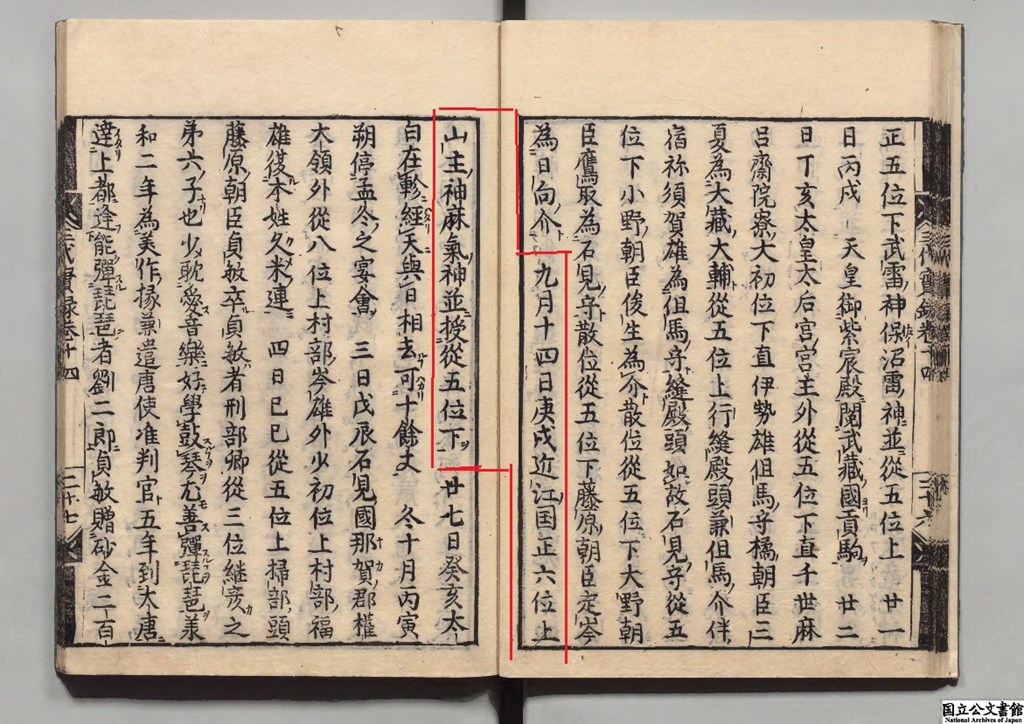 正五位下武雷神保沼雷神並從五位上　廿一
日丙戌　天皇御紫宸殿閲武藏國貢駒　廿二
日丁亥太皇太后宮宮主外從五位下直千世麻
呂齋院寮大初位下直伊勢雄但馬守橘朝臣三
夏為大藏大輔從五位上行縫殿頭兼但馬介伴
宿祢須賀雄為但馬守縫殿頭如故石見守從五
位下小野朝臣俊生為介散位從五位下大野朝
臣鷹取為石見守散位從五位下藤原朝臣定岑
為日向介　九月十四日庚戌近江国正六位上
三代實録卷十四
二十六
山主神麻氣神並授從五位下ヲ　廿七日癸亥太
白在軫經天與日相去可十餘丈　冬十月丙寅
朔停孟冬之宴會　三日戊辰石見國那賀郡權
大領外從八位上村部岑雄外少初位上村部福
雄復本姓久米連　四日己巳從五位上掃部頭
藤原朝臣貞敏卒貞敏者刑部卿從三位継彦之
弟六子也少耽愛音樂好學鼓琴尤善彈琵琶羕
和二年為美作掾兼遣唐使准判官五年到大唐
達上都逢能彈琵琶者劉二郎貞敏贈砂金二百
三代實録卷十四
二十七
国立公文書館
National Archives of Japan